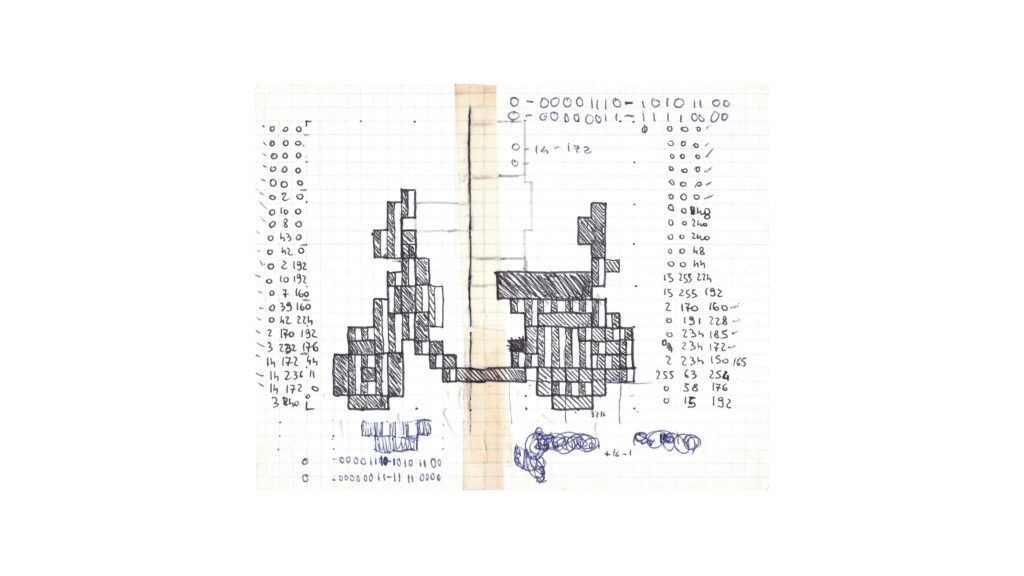 0 - 0000 1110 - 1010 11 00
0 - 00000011 - 1111 00 00
0 0 0
0 0 0
0 0 0
0 0 0
0 0 0
0 2 0
0 10 0
0 8 0
0 43 0
0 42 0
0 2 192
0 10 192
0 7 160
0 39 160
0 42 224
2 170 192
3 232 176
14 172 44
14 236 11
14 172 0
3 240 0
0 14 - 172
0
0 0 0
0 0 0
0 0 0
0 0 0
0 0 0
0 0 0
0 0 240
0 0 240
0 0 48
0 0 44
15 255 224
15 255 192
2 170 160
0 191 228
0 234 185
234 172
2 234 150 165
255 63 254
0 58 176
0 15 192
3216
+16-1
0 - 0000 1110 - 1010 11 00
0 - 000000 11 - 11 11 0000